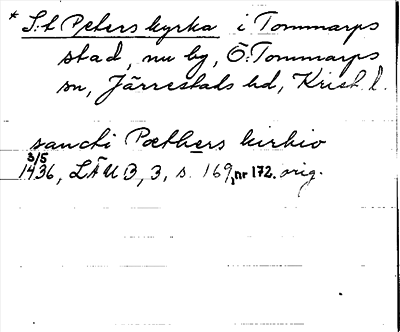 * S:t Peters kyrka i Tommarps
stad, nu by, Ö. Tommarps
sn, Järrestads hd, Krist. l.
sancti Pæthers kirkio
3/5
1436, LÄUB, 3, s. 169, nr 172. orig.